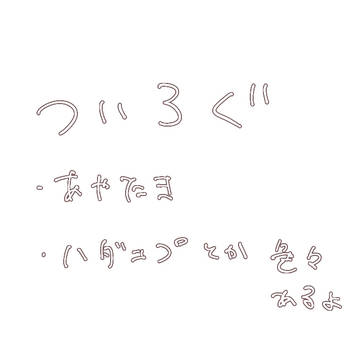 ついろぐ
・あやたま
・ハダュプとか 色々
あるよ